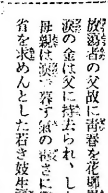 放蕩者の父故に青春を花街
涙の金は父に持去られ、し
母親は涙に暮す氣の毒さに
省を求めんとした若き妓生